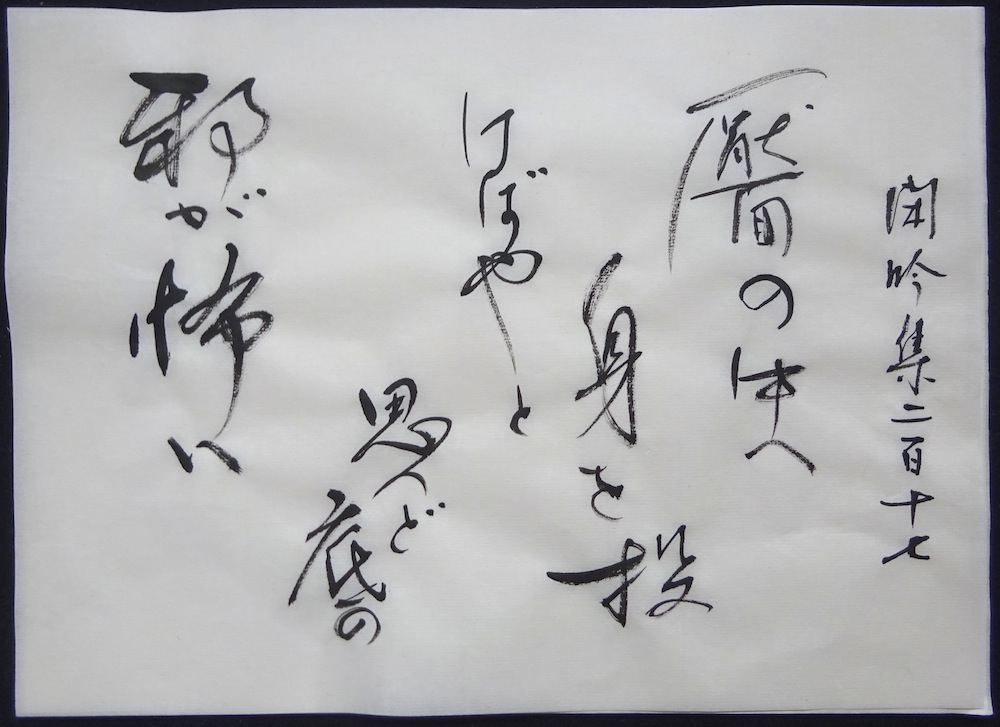 閑吟集二百十七
靨の中へ
身を投
げばやと
思へど
底の
邪が怖い